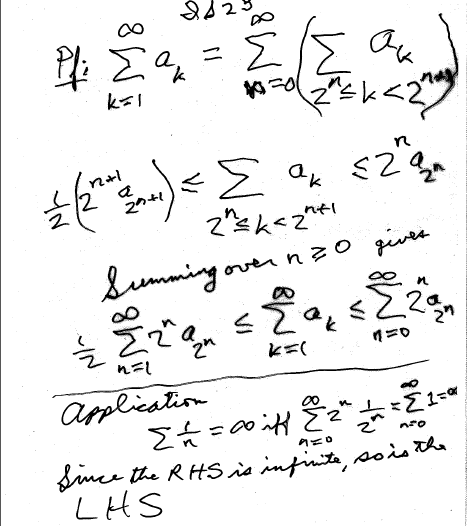 2525
Pf: ∑_{k=1}^{∞} a_k = ∑_{n=0}^{∞} ( ∑_{2^n ≤ k < 2^{n+1}} a_k )
½ ( 2^{n+1} a_{2^{n+1}} ) ≤ ∑_{2^n ≤ k < 2^{n+1}} a_k ≤ 2^n a_{2^n}
Summing over n ≥ 0 gives
½ ∑_{n=1}^{∞} 2^n a_{2^n} ≤ ∑_{k=1}^{∞} a_k ≤ ∑_{n=0}^{∞} 2^n a_{2^n}
Application
∑ 1/n = ∞ iff ∑_{n=0}^{∞} 2^n 1/2^n = ∑_{n=0}^{∞} 1 = ∞
Since the RHS is infinite, so is the
LHS